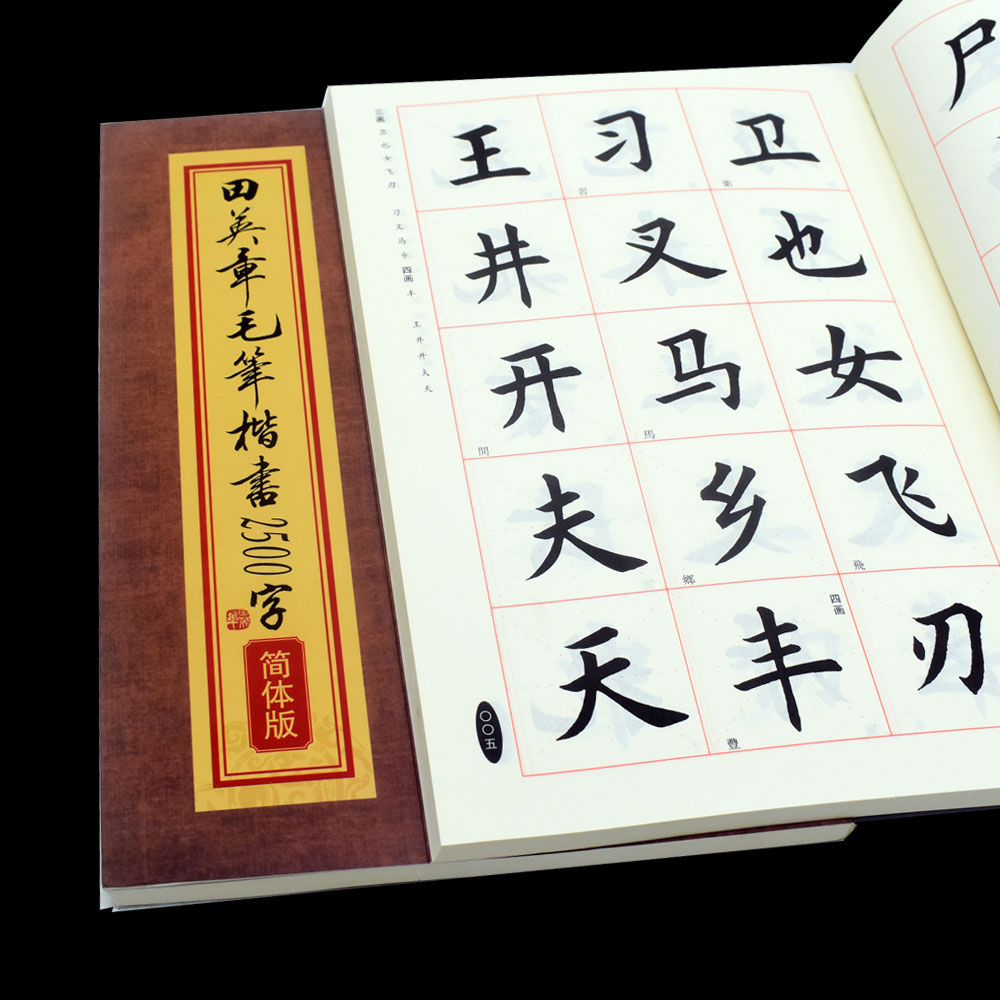 田英章毛筆楷書2500字
简体版
三画 卫 也 女 飞 刃 习 叉 马 乡 四画 丰 王 井 开 夫 天
卫 衛
也
女
飞 飛
刃
习 習
叉
马 馬
乡 鄉
四画
丰 豐
王
井
开 開
夫
天
〇〇五
尸